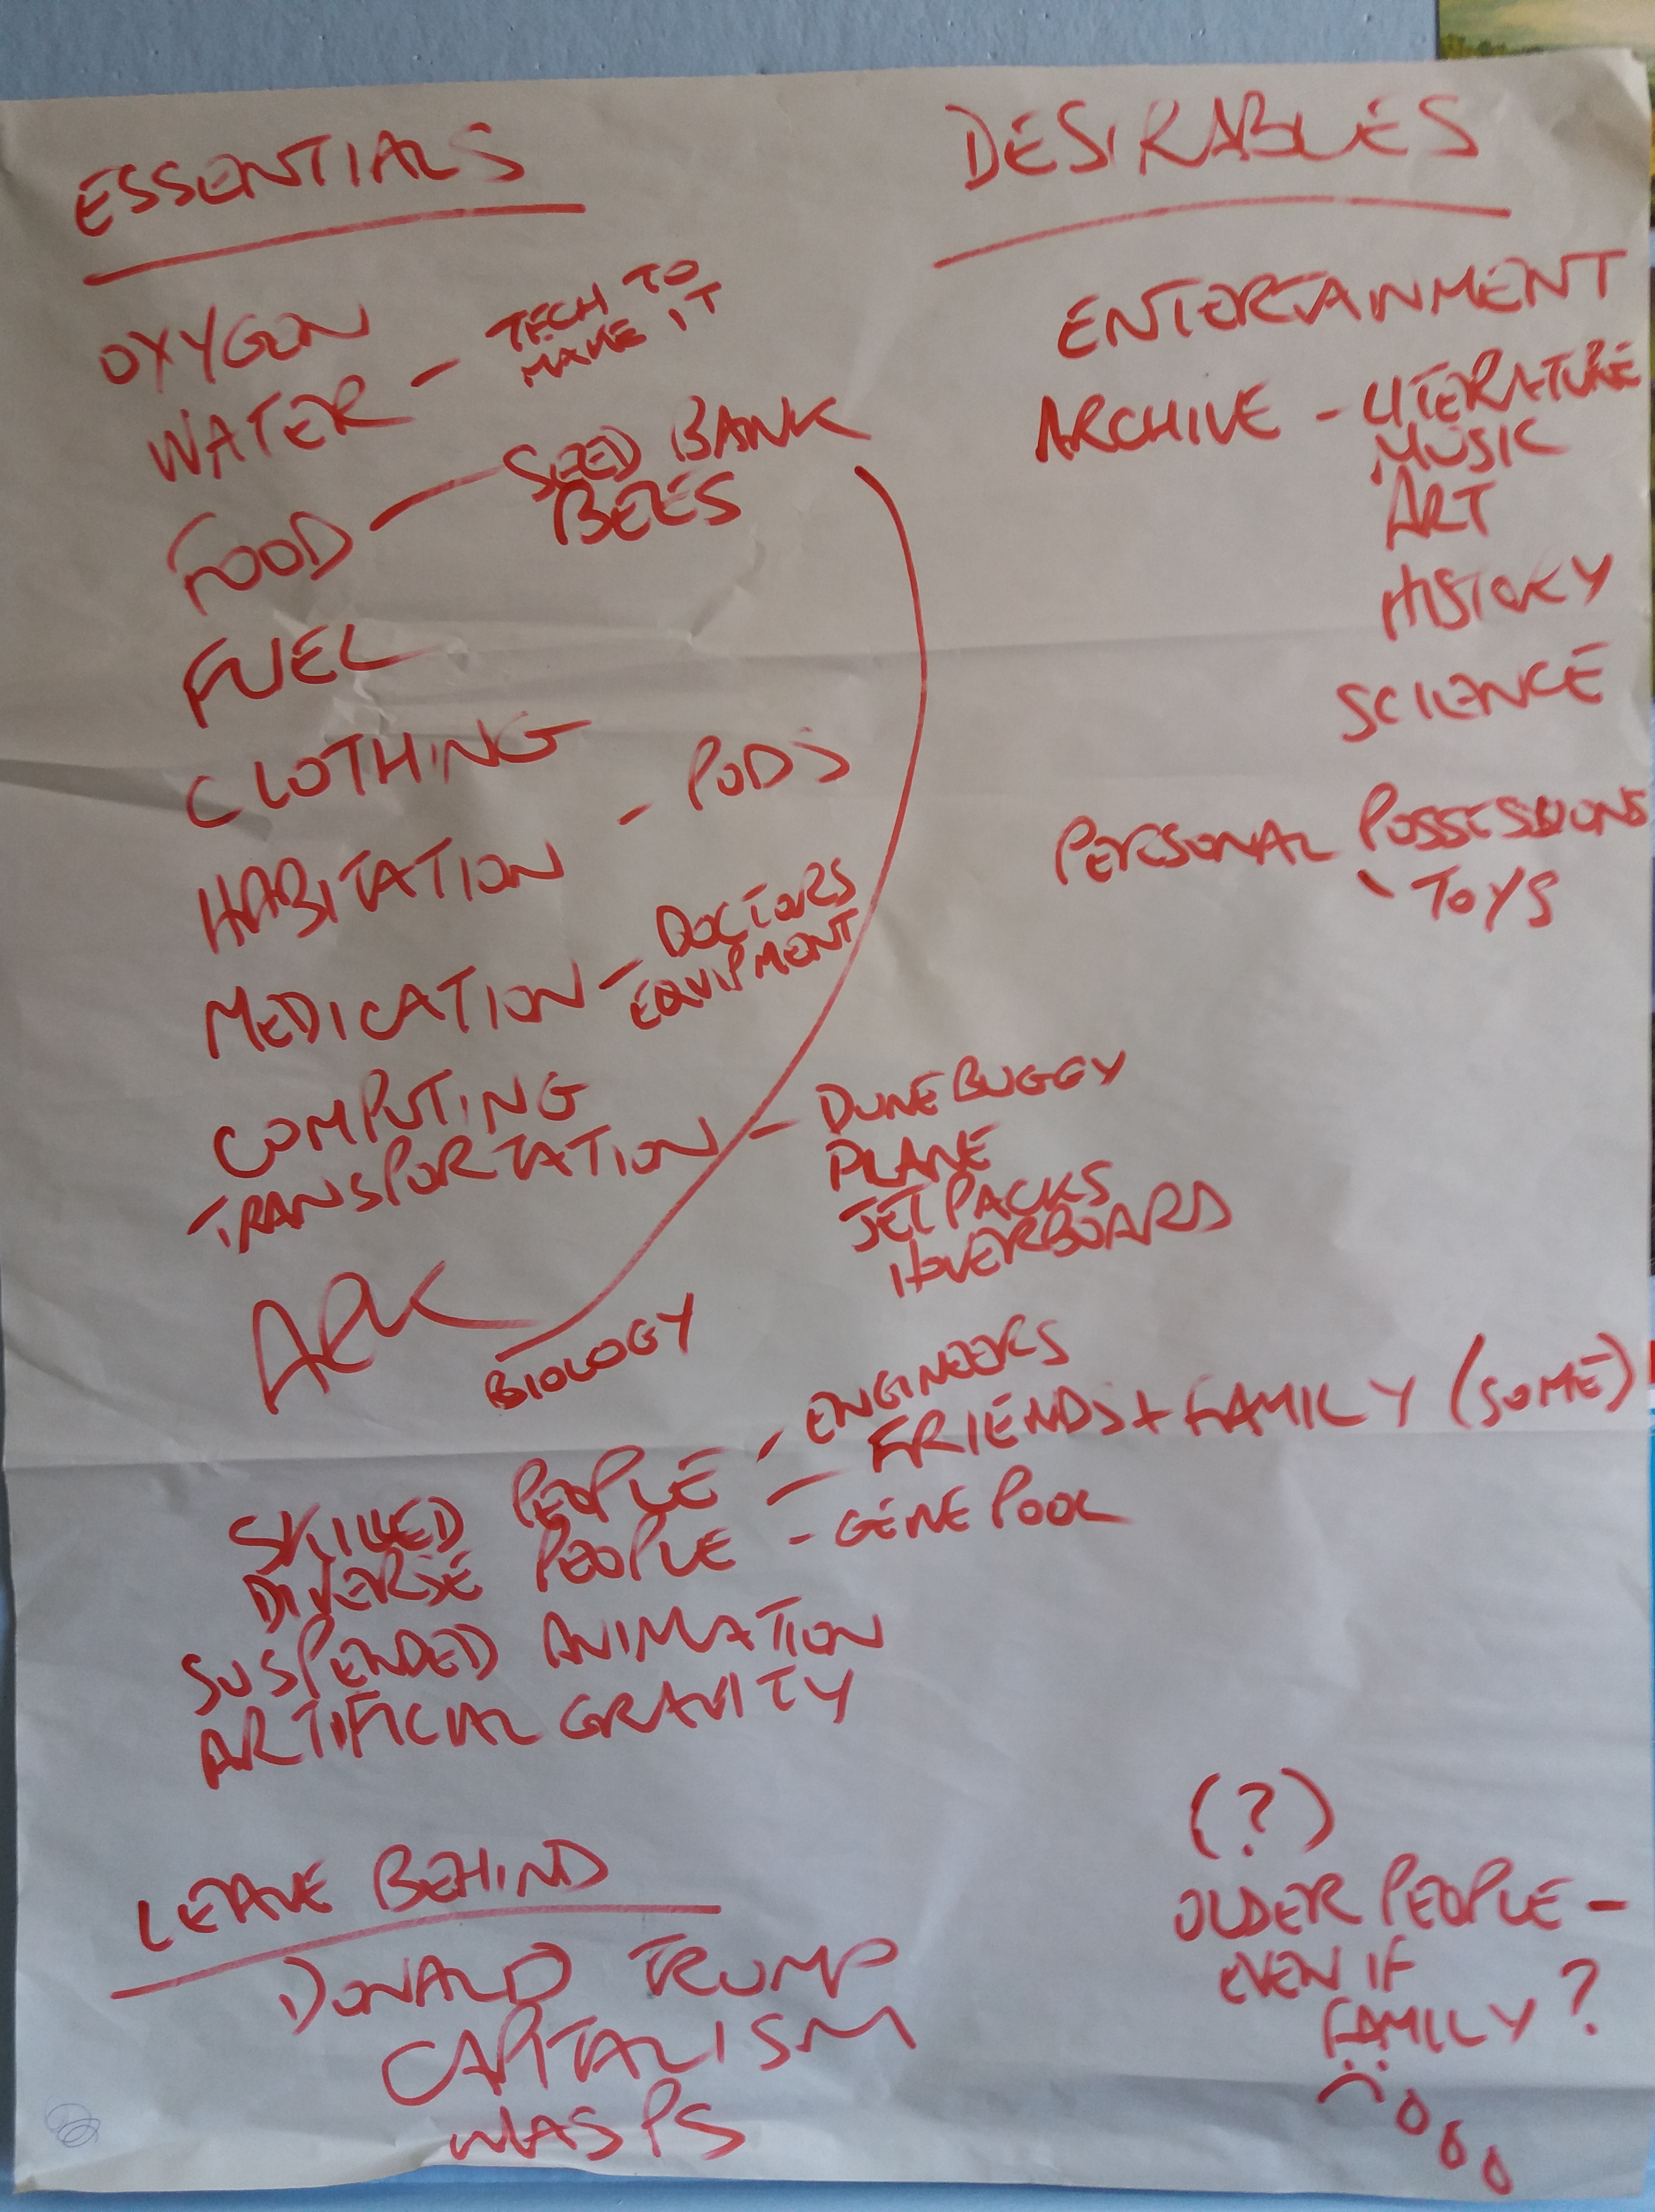 ESSENTIALS
OXYGEN
WATER - TECH TO
MAKE IT
FOOD - SEED BANK
BEES
FUEL
CLOTHING
HABITATION - PODS
MEDICATION - DOCTORS
EQUIPMENT
COMPUTING
TRANSPORTATION - DUNE BUGGY
PLANE
JET PACKS
HOVERBOARD
ARK
BIOLOGY
SKILLED PEOPLE - ENGINEERS
- FRIENDS + FAMILY (SOME)
DIVERSE PEOPLE - GENE POOL
SUSPENDED ANIMATION
ARTIFICIAL GRAVITY
LEAVE BEHIND
DONALD TRUMP
CAPITALISM
WASPS
DESIRABLES
ENTERTAINMENT
ARCHIVE - LITERATURE
MUSIC
ART
HISTORY
SCIENCE
PERSONAL POSSESSIONS
- TOYS
(?)
OLDER PEOPLE -
EVEN IF
FAMILY?